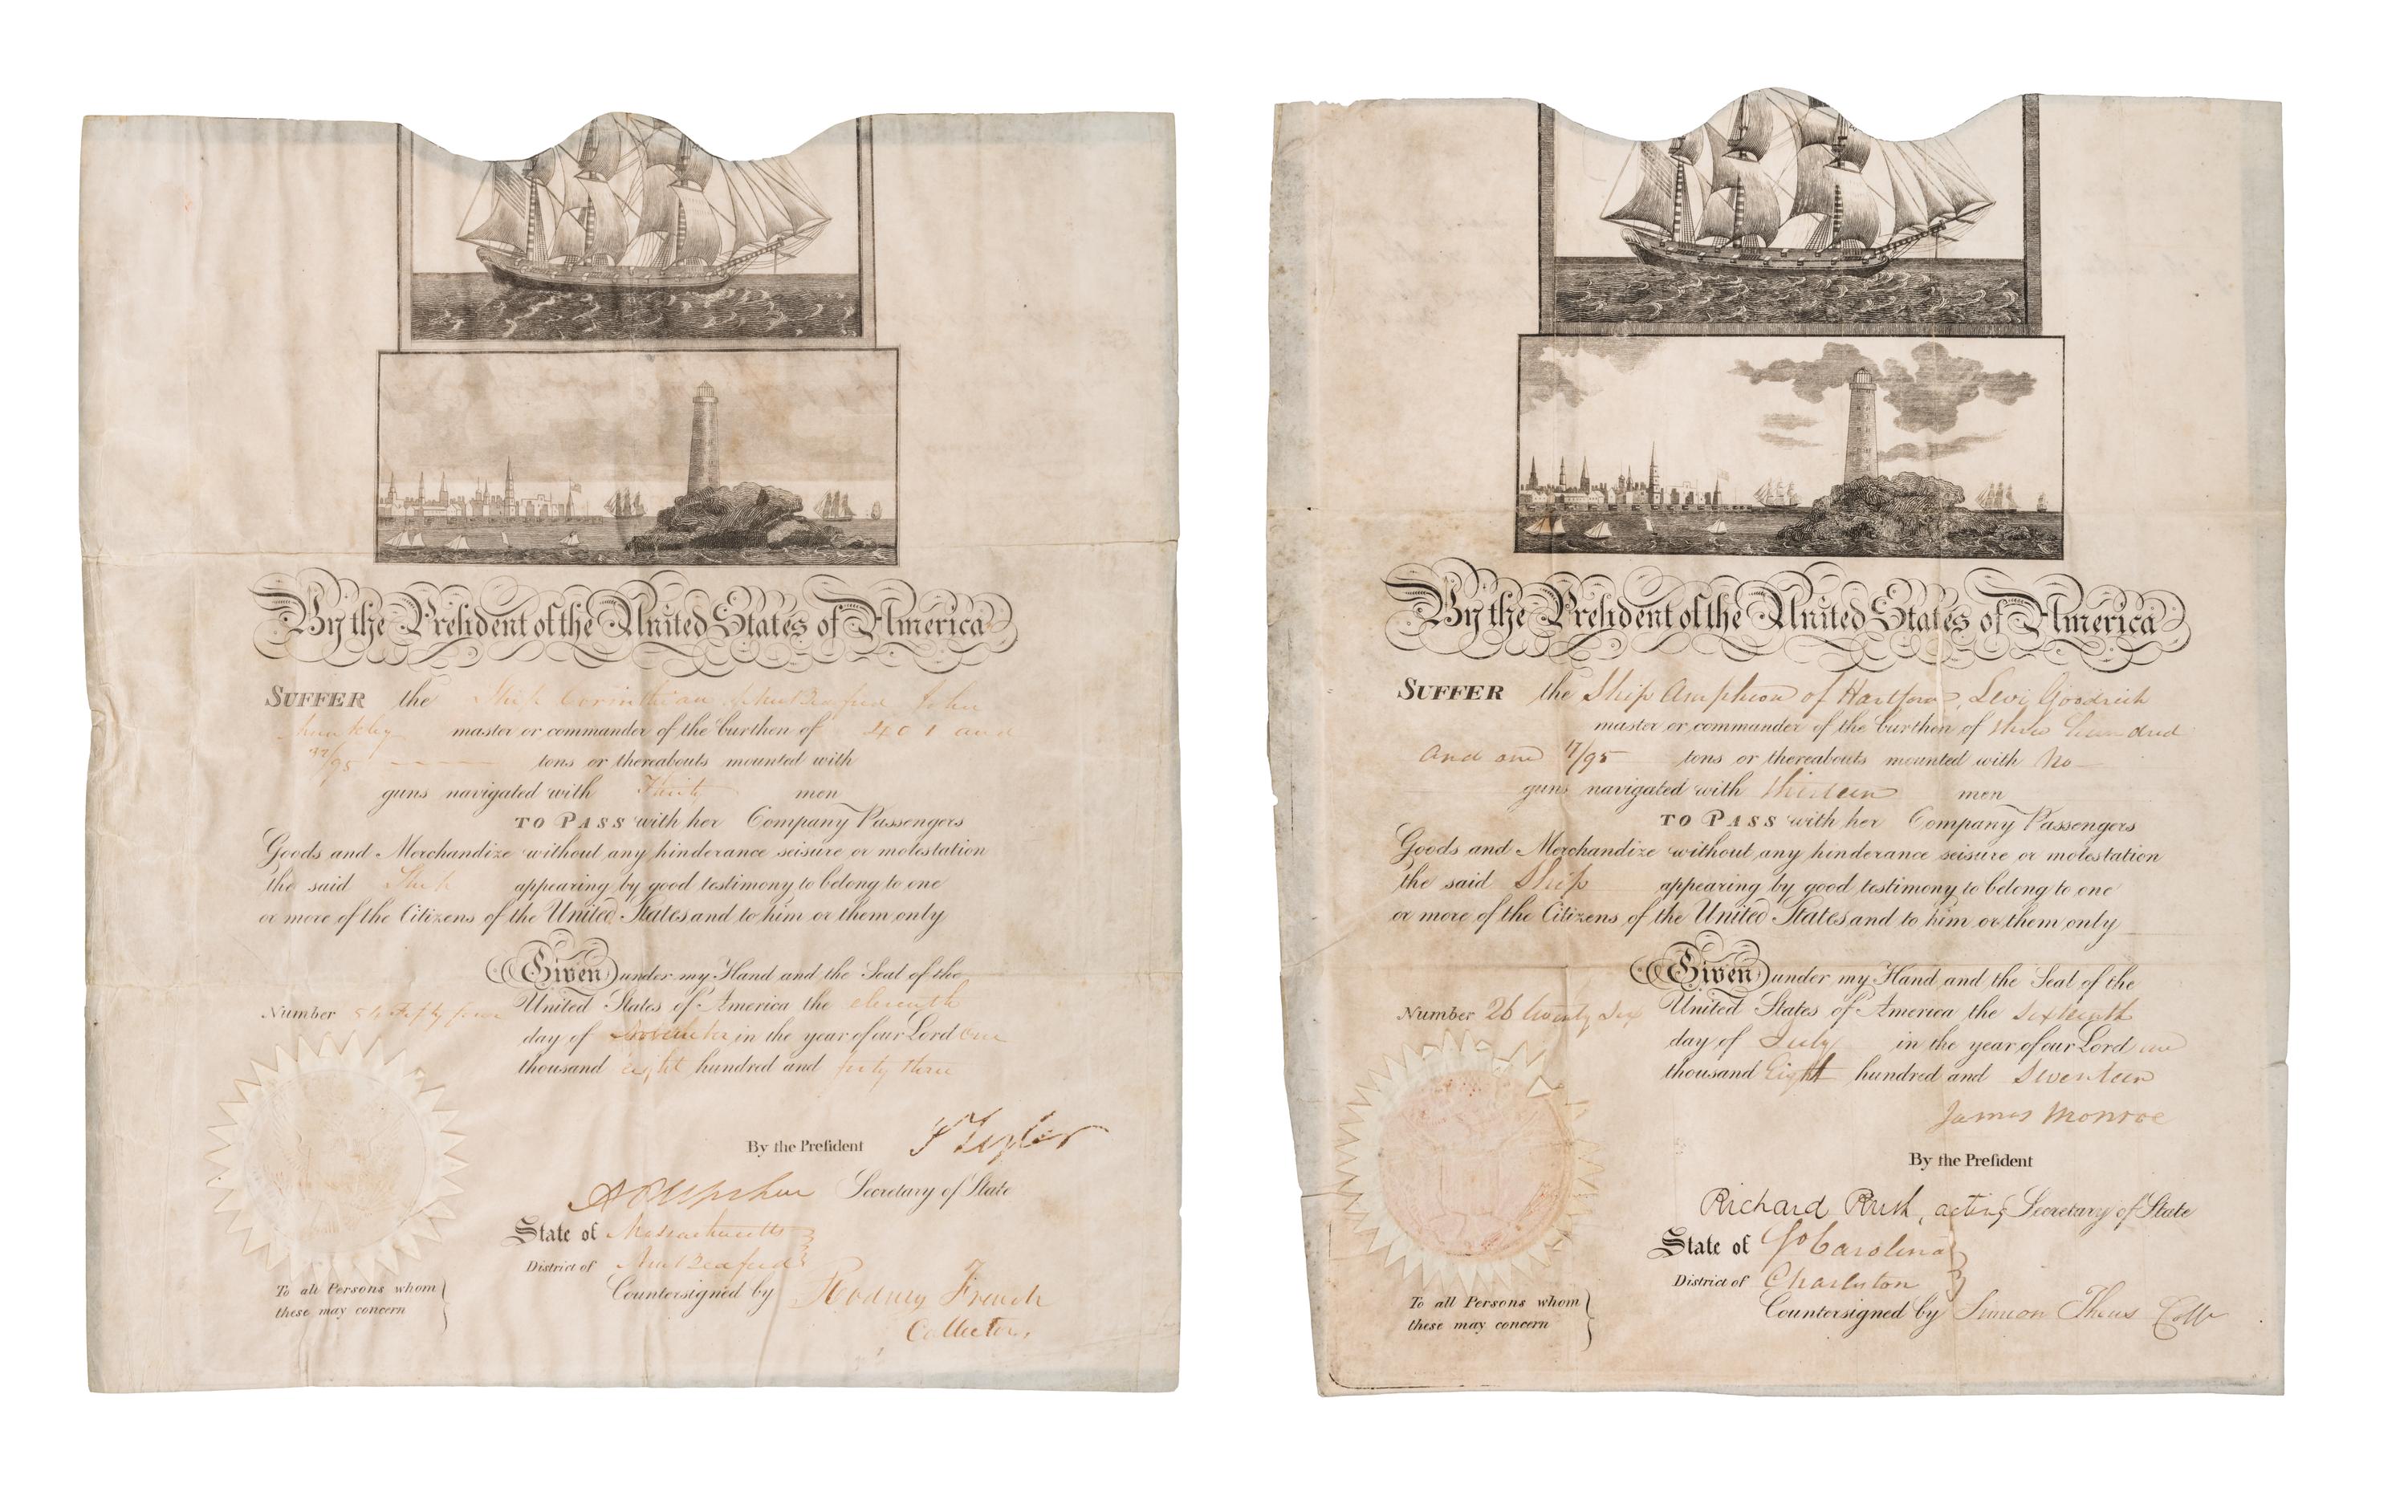 By the President of the United States of America
SUFFER the Ship Corinthian of New Bedford John
master or commander of the burthen of 401 and
37/95 tons or thereabouts mounted with
guns navigated with Thirty men
TO PASS with her Company Passengers
Goods and Merchandize without any hinderance seisure or molestation
the said Ship appearing by good testimony to belong to one
or more of the Citizens of the United States and to him or them only
Given under my Hand and the Seal of the
Number 54 Fifty four United States of America the eleventh
day of November in the year of our Lord one
thousand eight hundred and forty three
By the President J Tyler
A P Upshur Secretary of State
State of Massachusetts
District of New Bedford
To all Persons whom
these may concern
Countersigned by Rodney French
Collector,
By the President of the United States of America
SUFFER the Ship Amphion of Hartford, Levi Goodrich
master or commander of the burthen of three hundred
and one 7/95 tons or thereabouts mounted with no
guns navigated with thirteen men
TO PASS with her Company Passengers
Goods and Merchandize without any hinderance seisure or molestation
the said Ship appearing by good testimony to belong to one
or more of the Citizens of the United States and to him or them only
Given under my Hand and the Seal of the
Number 26 twenty Six United States of America the Sixteenth
day of July in the year of our Lord one
thousand Eight hundred and Seventeen
James Monroe
By the President
Richard Rush, acting Secretary of State
State of So Carolina
District of Charleston
To all Persons whom
these may concern
Countersigned by Simeon Theus Collr